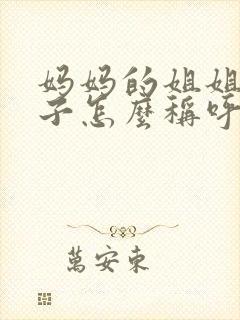 妈妈的姐姐
子怎麼稱呼
萬安東